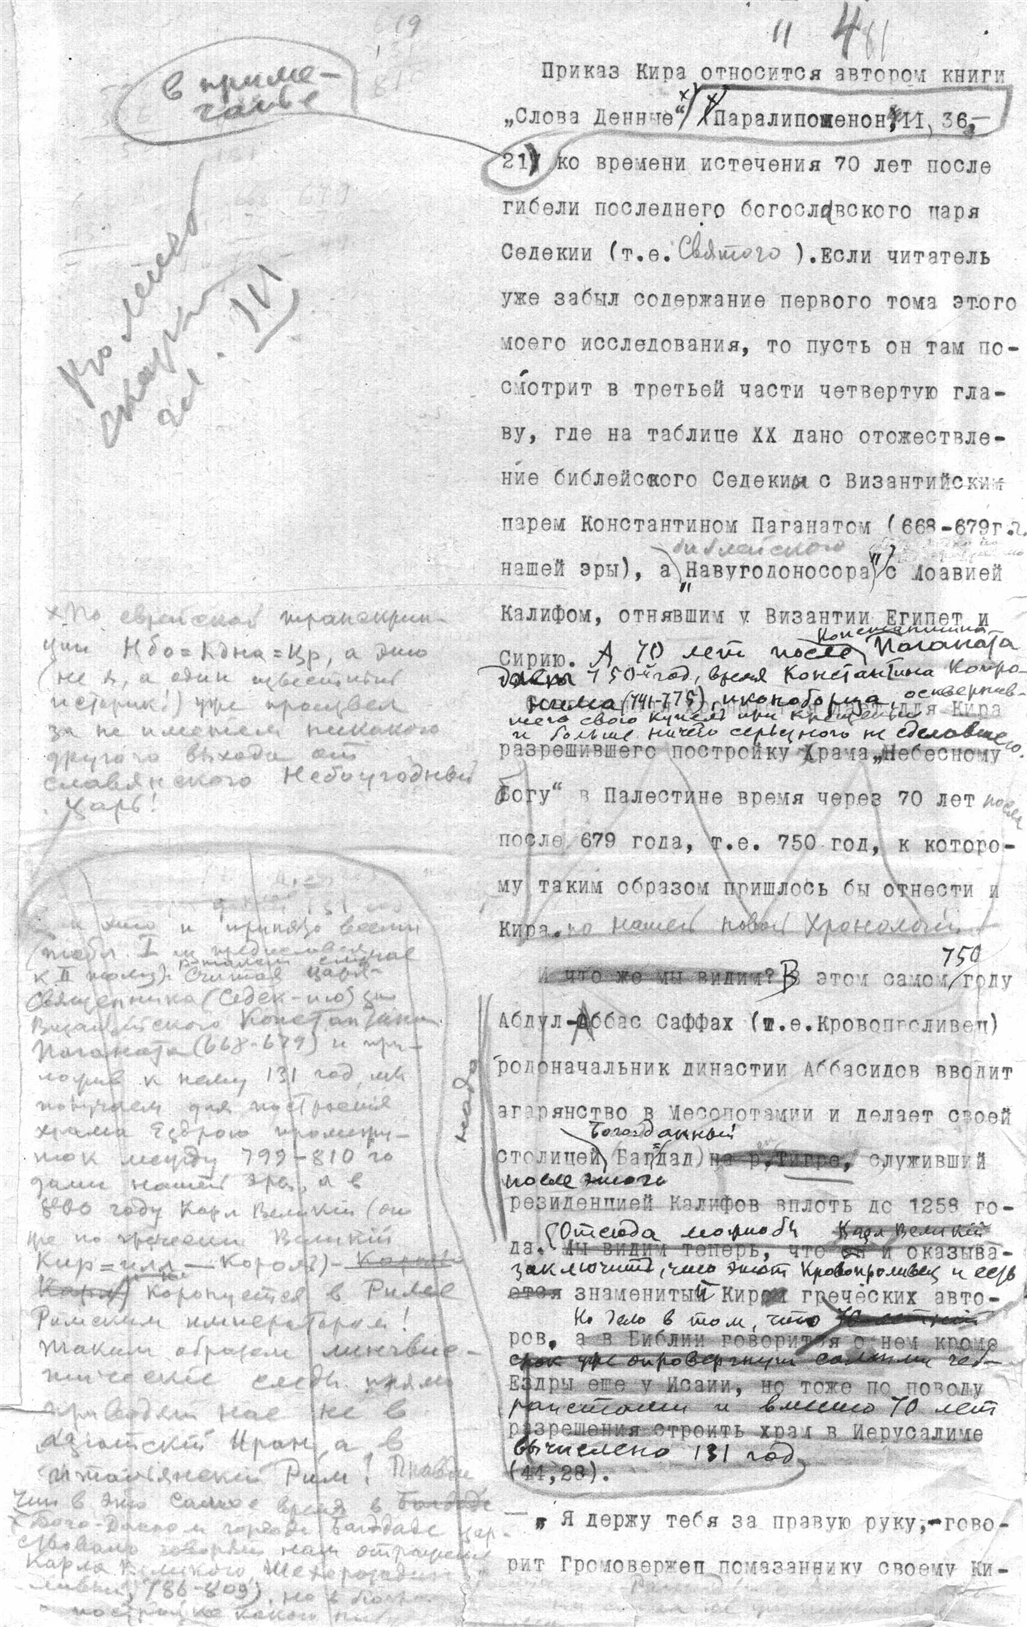 " 4 81
в приме-
чанье
Приказ Кира относится автором книги
„Слова Денные“ х) (Паралипоменон, II, 36,
21) ко времени истечения 70 лет после
гибели последнего богославского царя
Седекии (т.е. Святого ). Если читатель
уже забыл содержание первого тома этого
моего исследования, то пусть он там по-
смотрит в третьей части четвертую гла-
ву, где на таблице XX дано отожествле-
ние библейского Седекии с Византийским
царем Константином Паганатом (668-679г.
библейского
нашей эры), а "Навуходоносора" с Моавией
Калифом, отнявшим у Византии Египет и
Сирию. А 70 лет после Константина Паганата
750-й год, время Константина Копро-
нима (741-775), иконоборца, осквернив-
для Кира
шего свою купель при крещении
и больше ничего серьезного не сделавшего.
разрешившего постройку Храма „Небесному
Богу“ в Палестине время через 70 лет после
после 679 года, т.е. 750 год, к которо-
му таким образом пришлось бы отнести и
Кира. по нашей новой Хронологии
И что же мы видим? В этом самом 750 году
Абдул-Аббас Саффах (т.е. Кровопроливец)
родоначальник династии Аббасидов вводит
агарянство в Месопотамии и делает своей
Богоданный
столицей Багдад) на р. Тигре, служивший
после этого
резиденцией Калифов вплоть до 1258 го-
Отсюда можно бы Карл Великий
да. Мы видим теперь, что он и оказыва-
заключить, что этот Кровопроливец и есть
ется знаменитый Кир греческих авто-
Но дело в том, что 70-летний
ров, а в Библии говорится о нем кроме
срок уже опровергнут самими
Ездры еще у Исаии, но тоже по поводу
и вместо 70 лет
разрешения строить храм в Иерусалиме
вычислено 131 год
(44,28).
— „ Я держу тебя за правую руку,-гово-
рит Громовержец помазаннику своему Ки-
III
х По еврейской транскрип-
ции Нбо=Кдна=Цр, а это
(не я, а один известный
историк!) уже произвел
за не имением никакого
другого выхода от
славянского Небоугодный
Царь!
надо
к II тому). Считая царя-
Священника (Седек-ию) за
Византийского Константина
Паганата (668-679) и при-
ложив к нему 131 год, мы
получаем для построения
храма Ездрою промежу-
ток между 799-810 го
дами нашей эры, а в
800 году Карл Великий (он
же по гречески Великий
Кир=или — Король) — Король
Карл коронуется в Риме
Римским императором!
Таким образом лингвис-
тические следы прямо
приводят нас не в
азиатский Иран, а в
итальянский Рим! Правда
в это самое время в Багдаде
Бого-Данном городе Багдаде цар-
ствовало
Карла Великого,
(786-809), но о
постройке какого